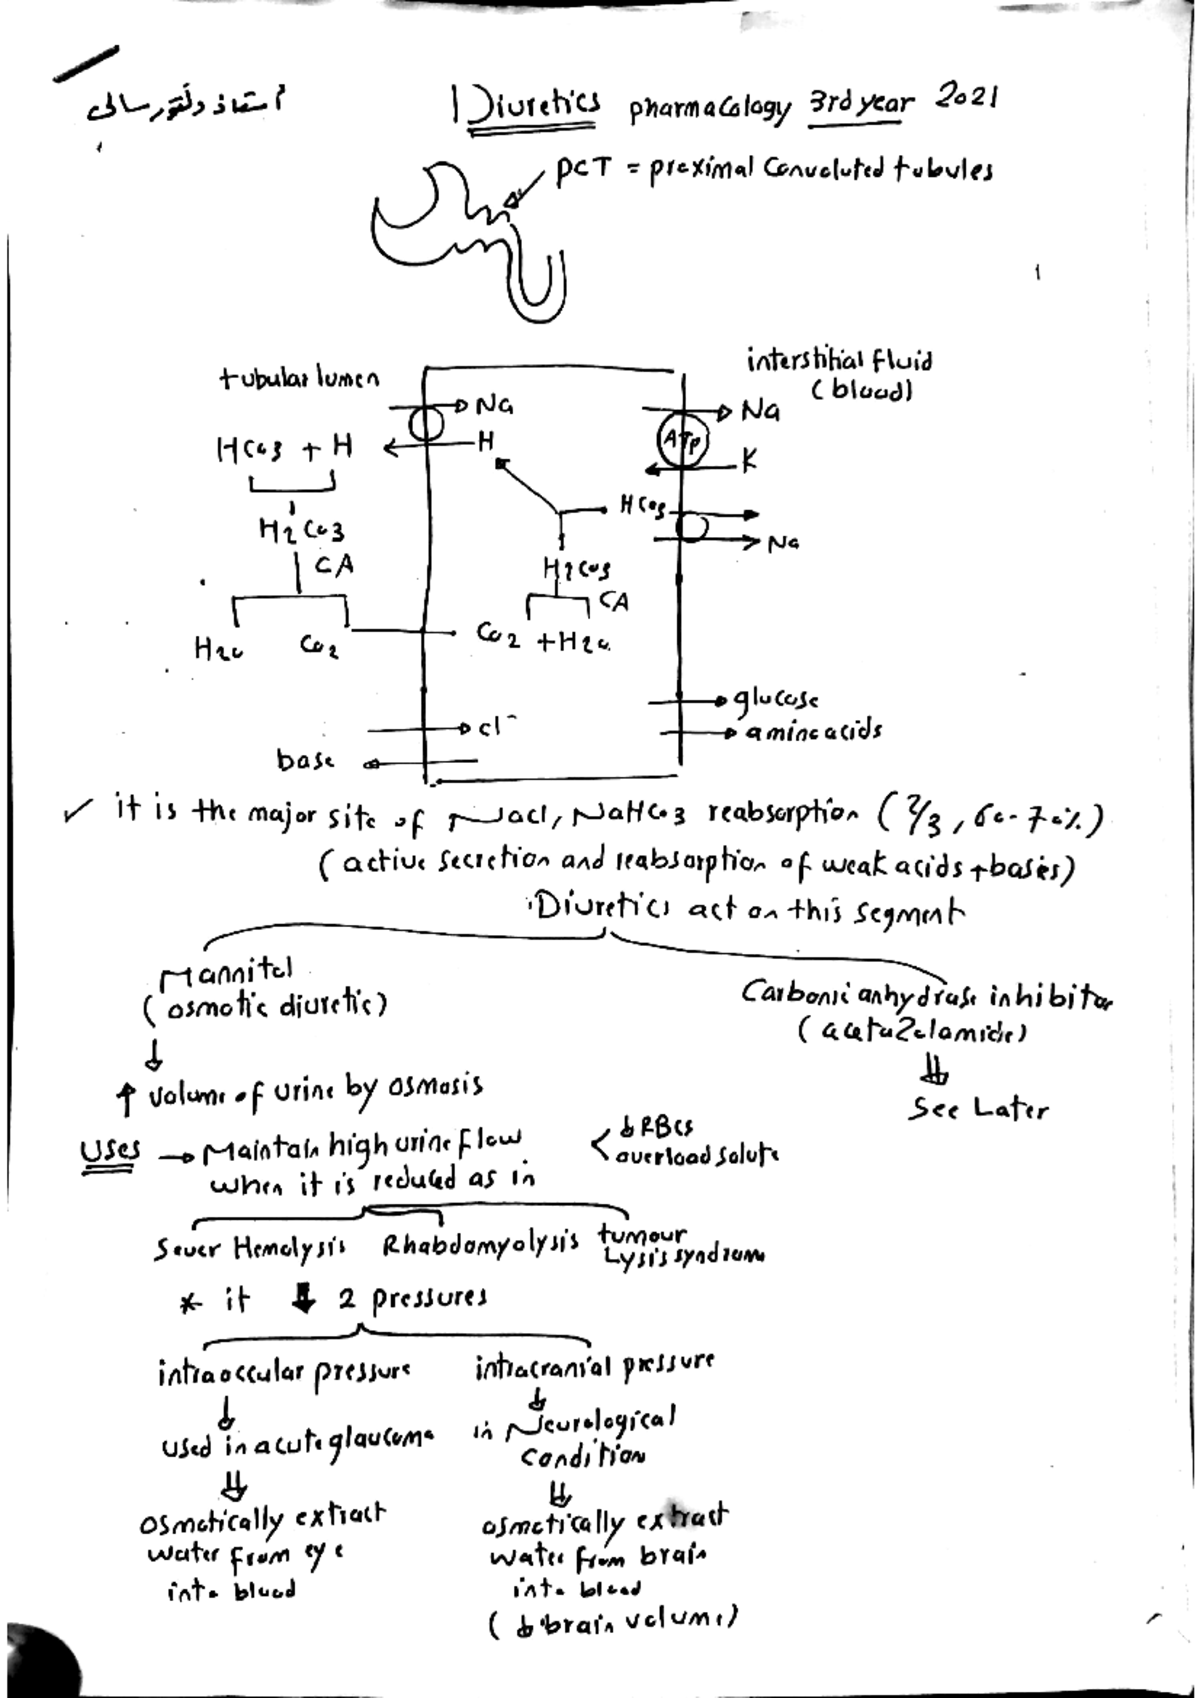 Diuretics pharmacology 3rd year 2021
أستاذ دكتور سالي
PCT = proximal Convoluted tubules
1
tubular lumen
interstitial fluid
(blood)
Na
Na
H
ATP
K
HCo3 + H
HCo3
Na
H2Co3
CA
H2Co3
CA
H2o Co2
Co2 + H2o
glucose
cl⁻
amino acids
base
✓ it is the major site of Nacl, NaHCo3 reabsorption (2/3, 60-70%)
(active secretion and reabsorption of weak acids + bases)
Diuretics act on this segment
Mannitol
(osmotic diuretic)
Carbonic anhydrase inhibitor
(acetazolamide)
↓
⇓
↑ volume of urine by osmosis
See Later
Uses → Maintain high urine flow
when it is reduced as in
↓ RBCs
overload solute
Sever Hemolysis Rhabdomyolysis tumour
Lysis syndrom
* it ↓ 2 pressures
intraoccular pressure
↓
used in acute glaucoma
⇓
osmotically extract
water from eye
into blood
intracranial pressure
↓
in Neurological
condition
⇓
osmotically extract
water from brain
into blood
(↓ brain volume)